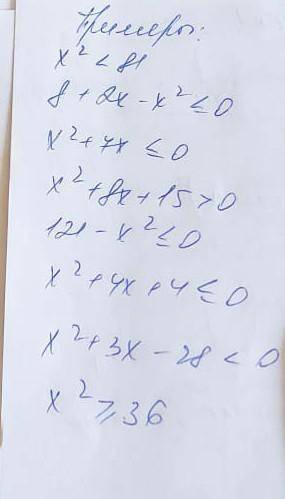 Примеры:
x² < 81
8 + 2x - x² ≤ 0
x² + 7x ≤ 0
x² + 8x + 15 > 0
121 - x² ≤ 0
x² + 4x + 4 ≤ 0
x² + 3x - 28 < 0
x² ≥ 36